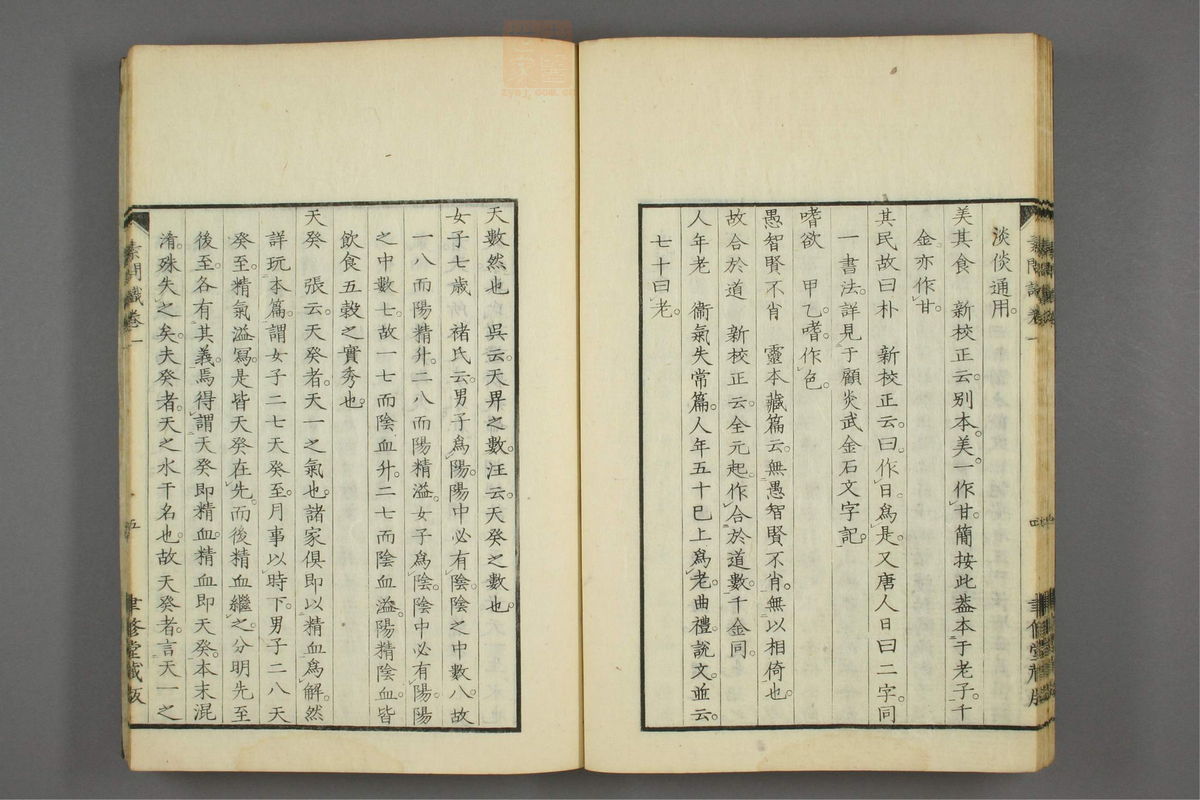 淡倓通用。
美其食　新校正云。別本。美一作甘。簡按此蓋本于老子。千
金亦作甘。
其民故曰朴　新校正云。曰。作日。爲是。又唐人日曰二字同
一書法。詳見于顧炎武金石文字記。
嗜欲　甲乙。嗜。作色。
愚智賢不肖　靈本藏篇云。無愚智賢不肖。無以相倚也。
故合於道　新校正云。全元起。作合於道數。千金同。
人年老　衞氣失常篇。人年五十已上爲老。曲禮。說文。並云。
七十曰老。
天數然也　吳云。天畀之數。汪云。天癸之數也。
女子七歲　褚氏云。男子爲陽。陽中必有陰。陰之中數八。故
一八而陽精升。二八而陽精溢。女子爲陰。陰中必有陽。陽
之中數七。故一七而陰血升。二七而陰血溢。陽精陰血。皆
飲食五穀之實秀也。
天癸　張云。天癸者。天一之氣也。諸家俱卽以精血爲解。然
詳玩本篇。謂女子二七天癸至。月事以時下。男子二八天
癸至。精氣溢寫。是皆天癸在先。而後精血繼之。分明先至
後至。各有其義。焉得謂天癸卽精血。精血卽天癸。本末混
淆。殊失之矣。夫癸者。天之水干名也。故天癸者。言天一之
素問識卷一
五
聿修堂藏版